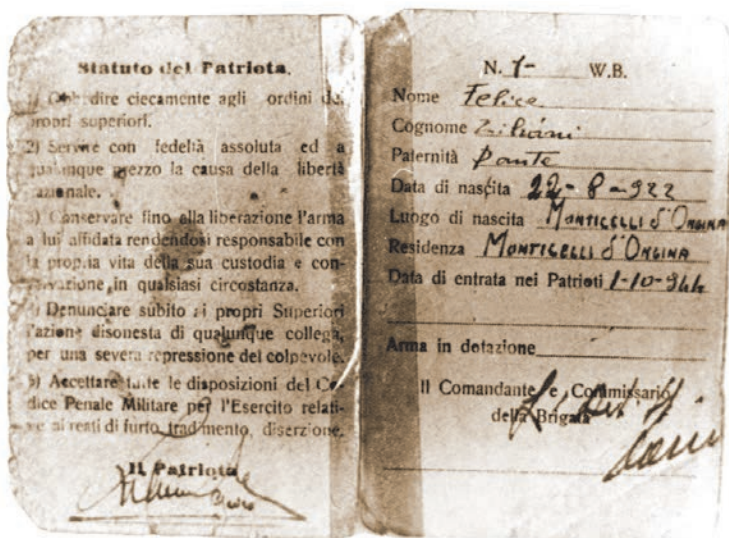 Statuto del Patriota.
1) Obbedire ciecamente agli ordini dei
propri superiori.
2) Servire con fedeltà assoluta ed a
qualunque prezzo la causa della libertà
nazionale.
3) Conservare fino alla liberazione l'arma
a lui affidata rendendosi responsabile con
la propria vita della sua custodia e con-
servazione in qualsiasi circostanza.
4) Denunciare subito ai propri Superiori
l'azione disonesta di qualunque collega,
per una severa repressione del colpevole.
5) Accettare tutte le disposizioni del Co-
dice Penale Militare per l'Esercito relati-
ve ai reati di furto, tradimento, diserzione.
Il Patriota
N. 7- W.B.
Nome Felice
Cognome Ziliani
Paternità Dante
Data di nascita 22-8-922
Luogo di nascita MONTICELLI d'ONGINA
Residenza MONTICELLI d'ONGINA
Data di entrata nei Patrioti 1-10-944
Arma in dotazione
Il Comandante e Commissario
della Brigata